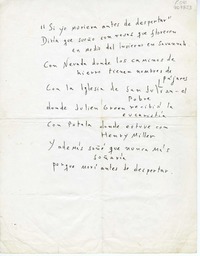 "Si yo muriera antes de despertar"
Diría que soñé con rosas que florecen
en medio del invierno en Savannah
Con Nevada donde los caminos de
hierro tienen nombres de
pájaros
Con la Iglesia de San Julián el
Pobre
donde Julien Green recibió la
eucaristía
Con Potala donde estuve con
Henry Miller
Y además soñé que nunca más
soñaría
porque morí antes de despertar.